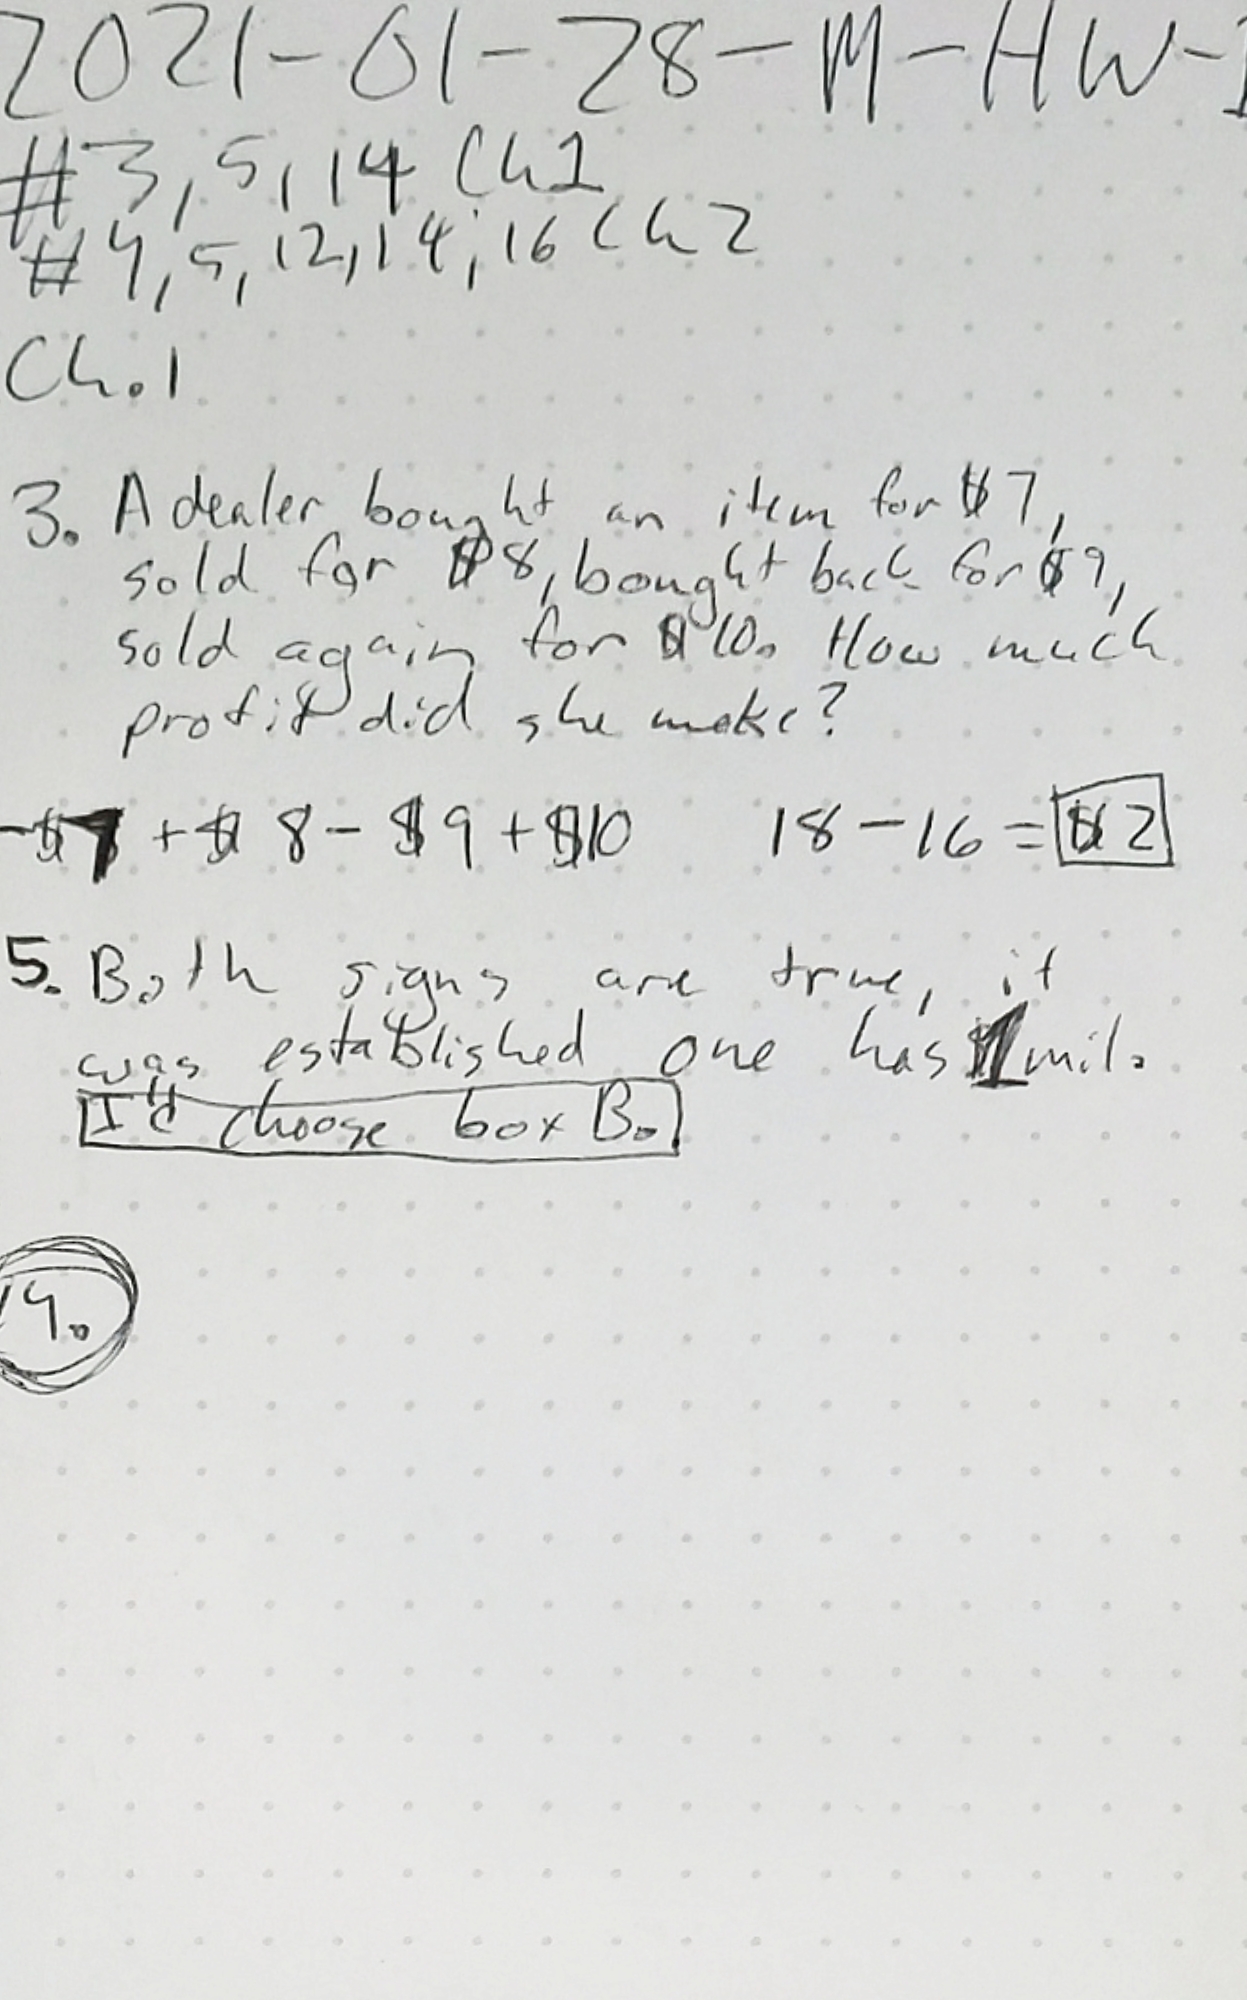 2021-01-28-M-HW-1
#3,5,14 Ch1
#4,5,12,14,16 Ch2
Ch.1
3. A dealer bought an item for $7,
sold for $8, bought back for $9,
sold again for $10. How much
profit did she make?
-$7 + $8 - $9 + $10 18 - 16 = $2
5. Both signs are true, it
was established one has $1 mil.
I'd choose box B.
14.